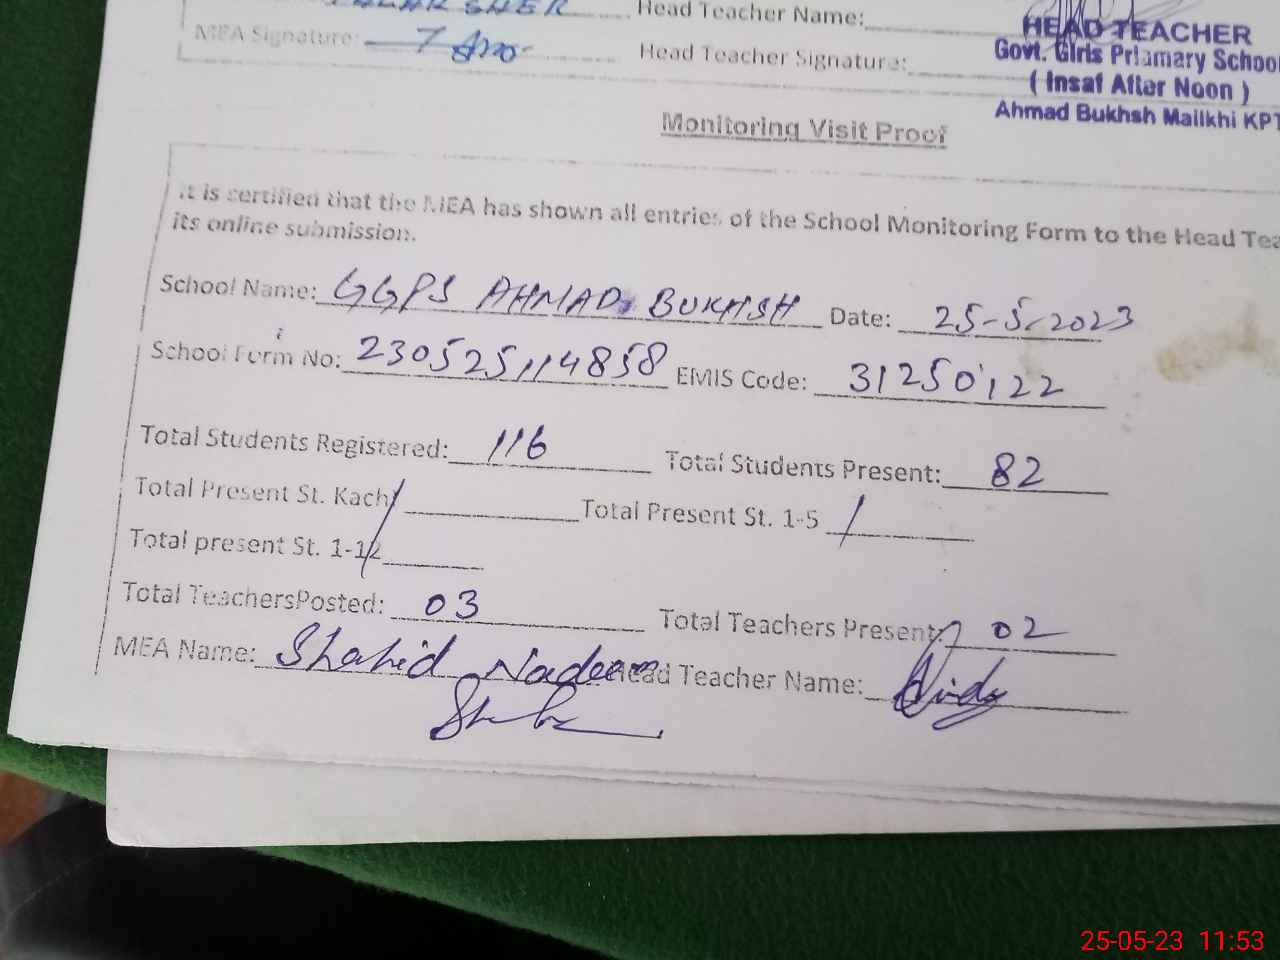 Head Teacher Name:
MEA Signature:
Head Teacher Signature:
HEAD TEACHER
Govt. Girls Priamary School
( Insaf After Noon )
Ahmad Bukhsh Mailkhi KPT
Monitoring Visit Proof
It is certified that the MEA has shown all entries of the School Monitoring Form to the Head Tea
its online submission.
School Name: GGPS AHMAD BUKHSH Date: 25-5-2023
School Form No: 230525114858 EMIS Code: 31250122
Total Students Registered: 116 Total Students Present: 82
Total Present St. Kachi Total Present St. 1-5
Total present St. 1-12
Total TeachersPosted: 03 Total Teachers Present: 02
MEA Name: Shahid Nadeem Head Teacher Name:
25-05-23 11:53